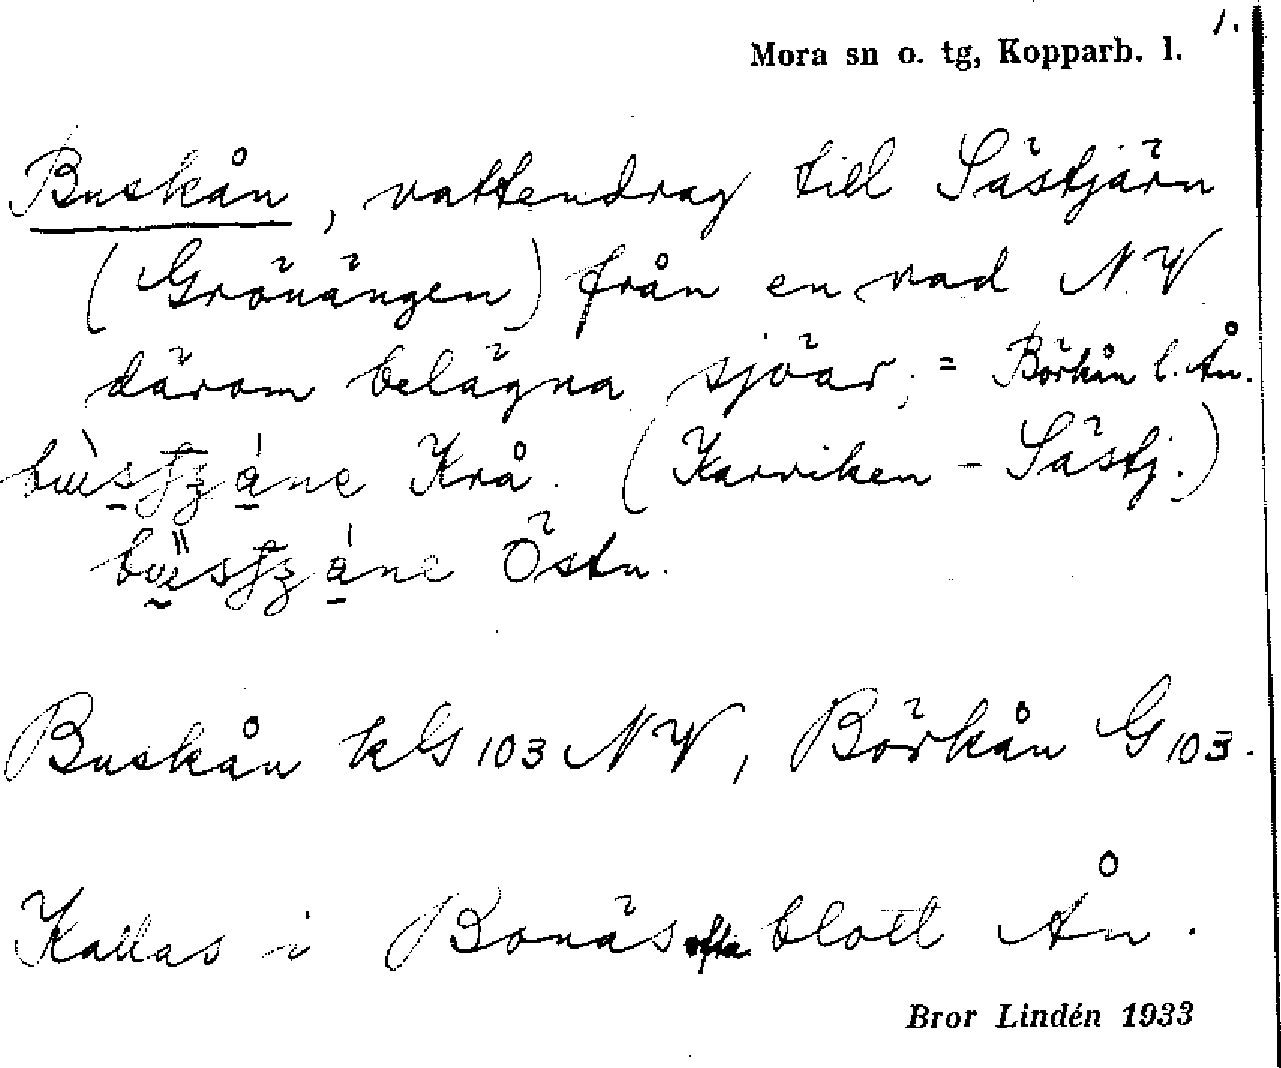 1.
Mora sn o. tg, Kopparb. l.
Buskån, vattendrag till Såstjärn
(Grönängen) från en rad NV
därom belägna sjöar; = Börkån l. Ån.
Krå. (Karviken - Såstj.)
Östn.
Buskån kG 103 NV, Börkån G 103.
Kallas i Bonäs ofta blott Ån.
Bror Lindén 1933